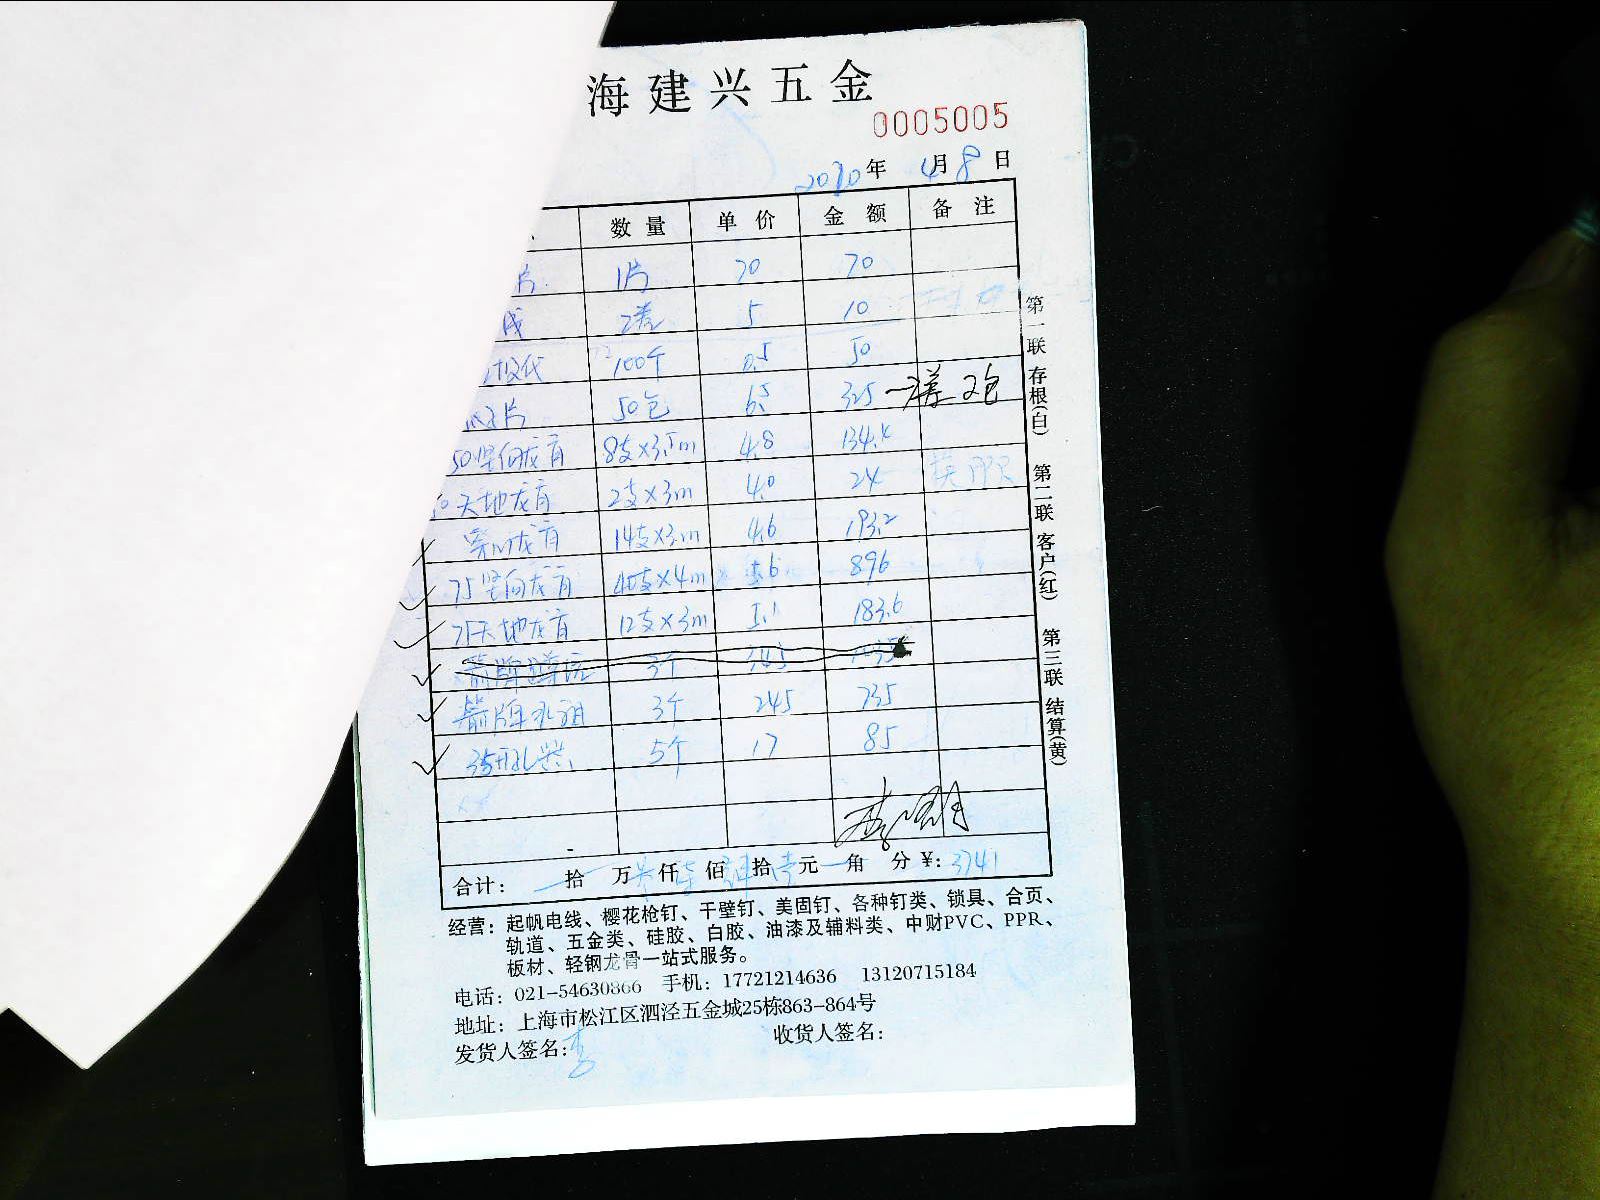 海建兴五金
0005005
2020年 4月8日
数量 单价 金额 备注
片 1片 70 70
2卷 5 10
100个 0.5 50
片 50包 6.5 325 一样2包
50竖向龙骨 8支×3.5m 4.8 134.4
天地龙骨 2支×3m 4.0 24
龙骨 14支×3m 4.6 193.2
75竖向龙骨 40支×4m 5.6 896
75天地龙骨 12支×3m 5.1 183.6
箭牌 3个 345 1035
箭牌 3个 245 735
35开孔器 5个 17 85
合计： 拾 万 仟 佰 拾 元 角 分 ¥：3741
第一联 存根(白) 第二联 客户(红) 第三联 结算(黄)
经营：起帆电线、樱花枪钉、干壁钉、美固钉、各种钉类、锁具、合页、
轨道、五金类、硅胶、白胶、油漆及辅料类、中财PVC、PPR、
板材、轻钢龙骨一站式服务。
电话：021-54630866 手机：17721214636 13120715184
地址：上海市松江区泗泾五金城25栋863-864号
发货人签名：李 收货人签名：